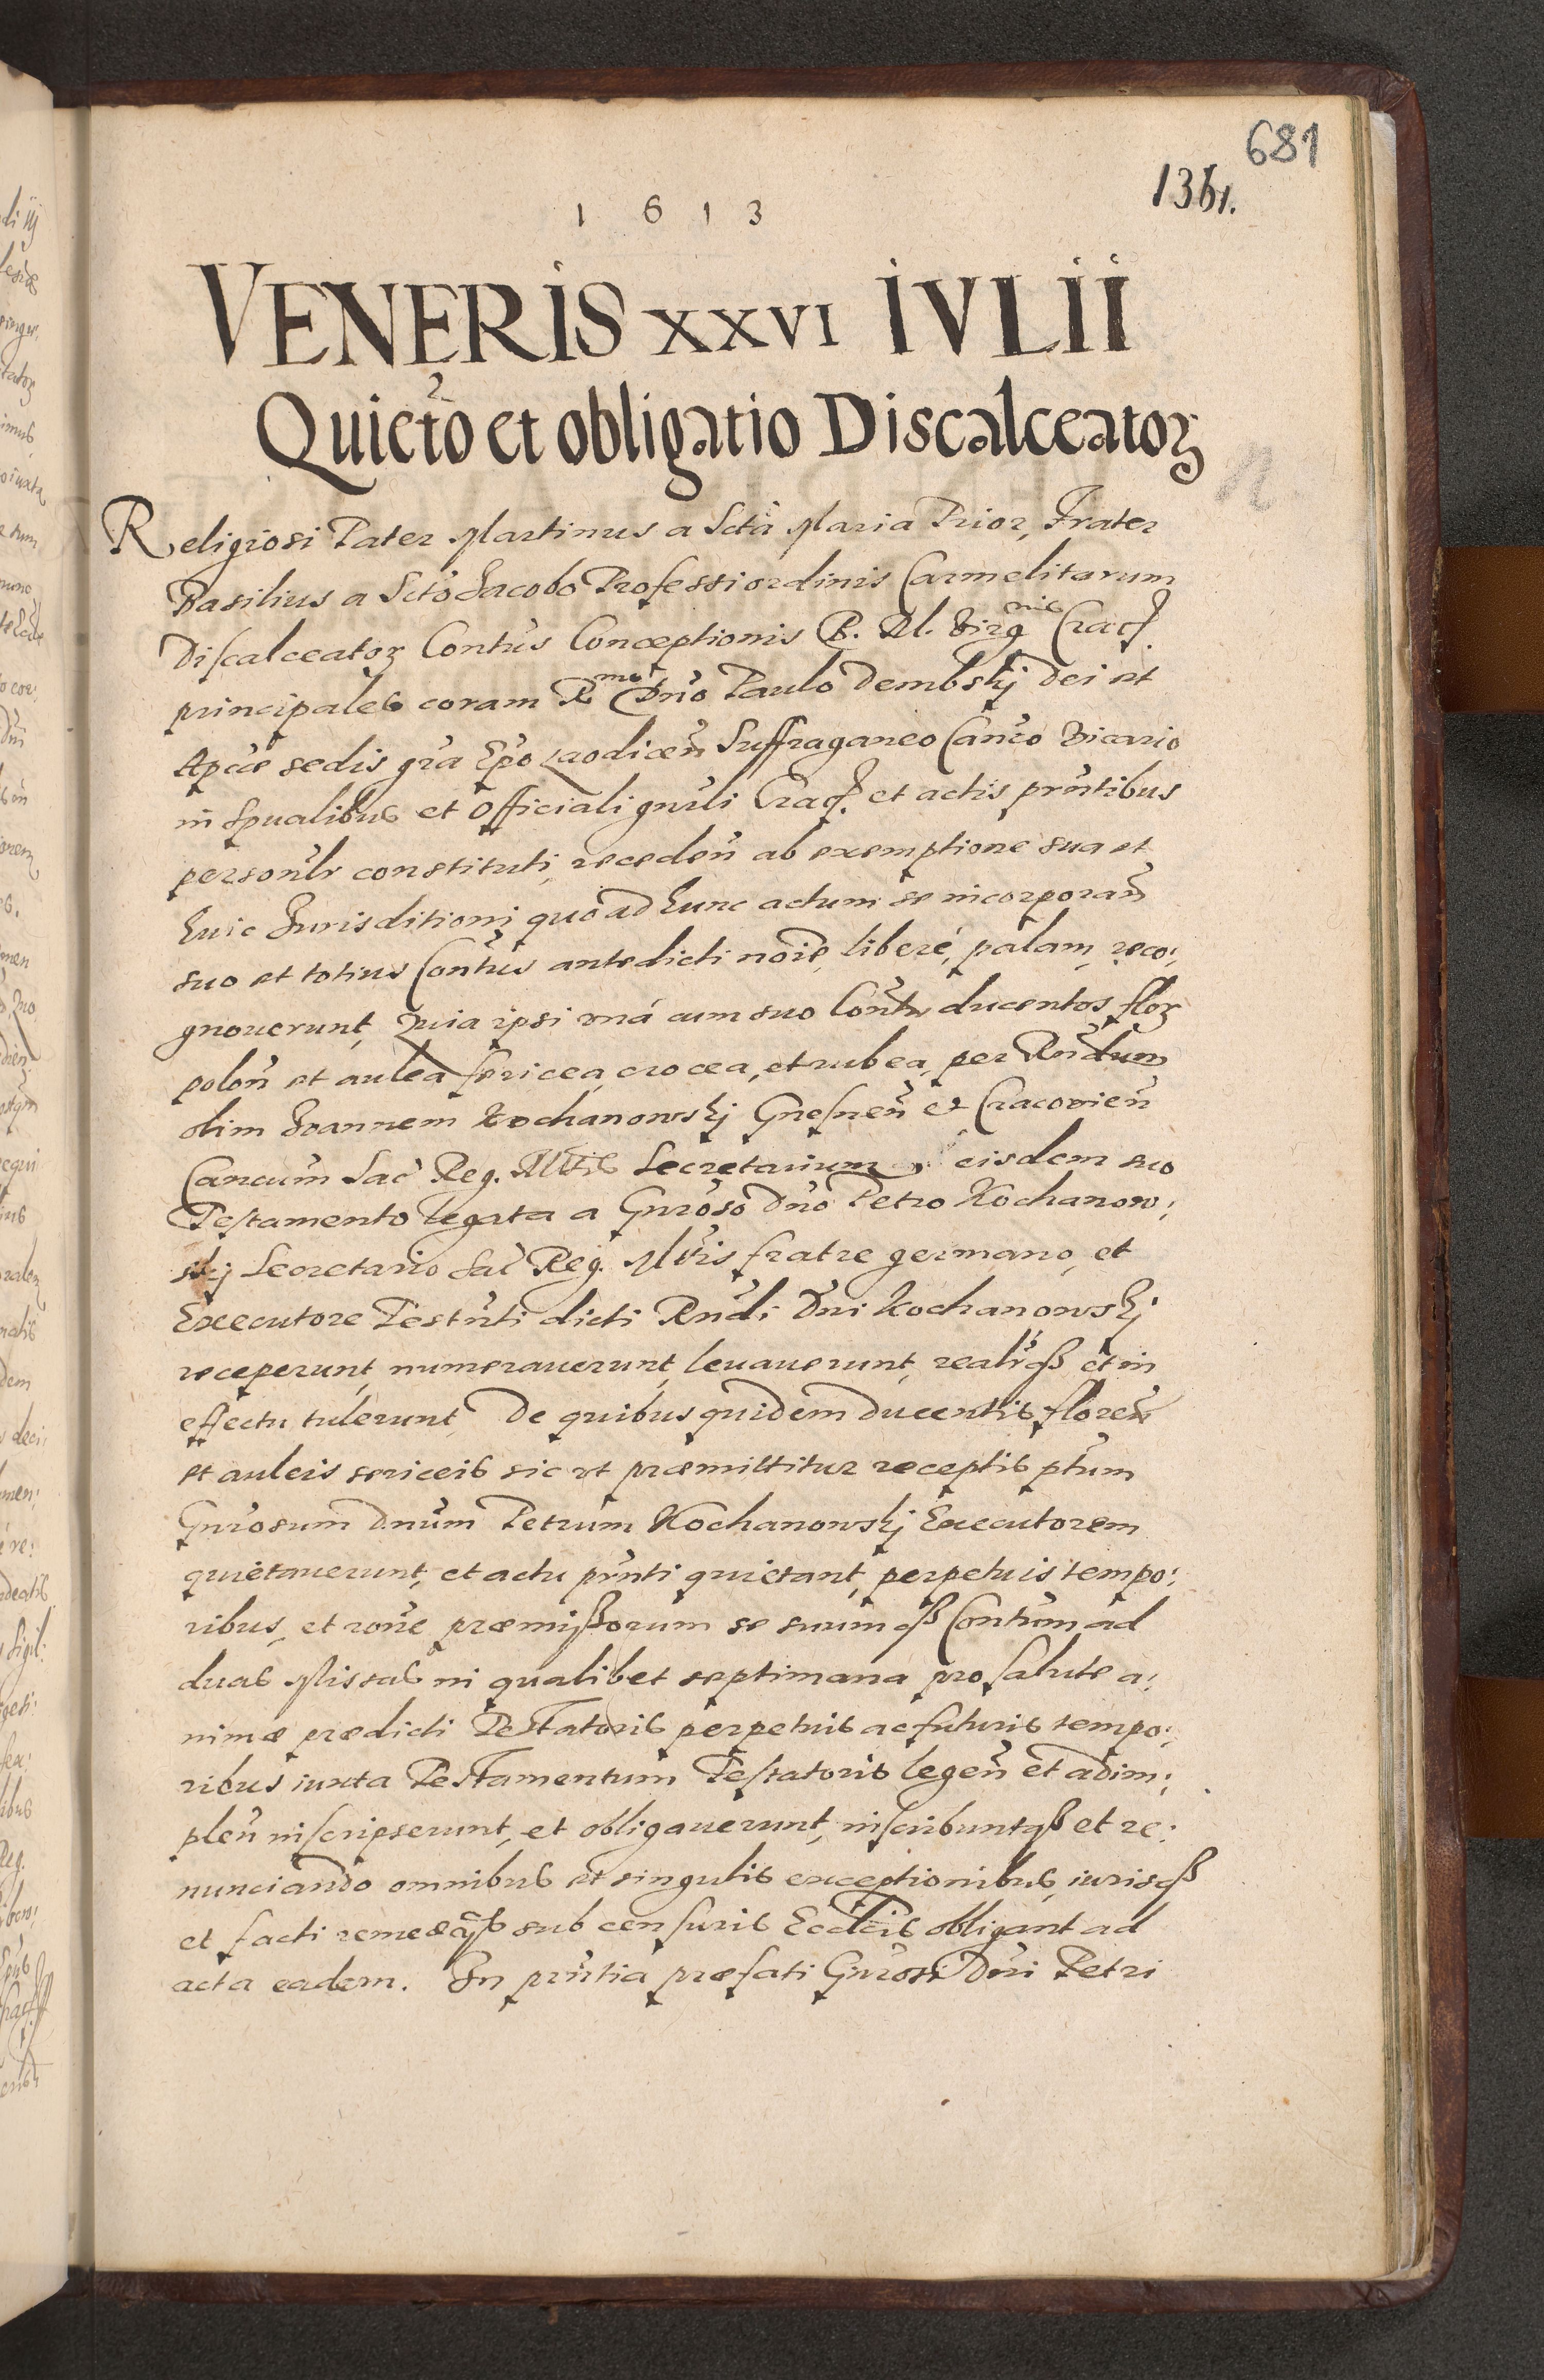 681
1361.
1613
VENERIS XXVI IVLII
Quietō et obligatio Discalceatoꝝ
Religiosi Pater Martinus a Sctã Maria Prior, Frater
Basilius a Scto Jacobo Professi ordinis Carmelitarum
Discalceatoꝝ Contus Conceptionis B. M. Virgnis Crac.
principales coram Rmo Dno Paulo Dembskj Dei et
Apcae sedis gra Epo Laodicen Suffraganeo Canco Vicario
in Spualibus et Officiali gnrli Crac. et actis prntibus
personlr constituti, receden ab exemptione sua et
huic Jurisditioni quoad hunc actum se incorporan
suo et totius Contus antedicti noie, liberé, palam, reco:
gnouerunt, Quia ipsi vná cum suo Contu ducentos floꝝ
polon et aulea sericea, crocea, et rubea, per Rndum
olim Joannem Kochanowskj Gnesnen et Cracovien
Cancum Sac Reg. Mttis Secretarium eisdem suo
Testamento legata a Gnroso Dno Petro Kochanow:
skj Secretario Sac Reg. Mttis fratre germano, et
Executore Testnti dicti Rndi Dni Kochanowskj
receperunt, numerauerunt, leuauerunt, realrqꝫ et in
effectu tulerunt, De quibus quidem ducentis floren
et auleis sericeis sic ut præmittitur receptis ptum
Gnrosum Dnum Petrum Kochanowskj Executorem
quietauerunt, et actu prnti quietant, perpetuis tempo:
ribus, et rone præmissorum se suumqꝫ Contum ad
duas Missas in qualibet septimana pro salute a:
nimæ prædicti Testatoris perpetuis ac futuris tempo:
ribus iuxta Testamentum Testatoris legen et adim:
plen inscripserunt, et obligauerunt, inscribuntqꝫ et re:
nunciando omnibus et singulis exceptionibus, iurisqꝫ
et facti remedijsqꝫ sub censuris Eccleis obligant ad
acta eadem. In prntia præfati Gnrosi Dni Petri